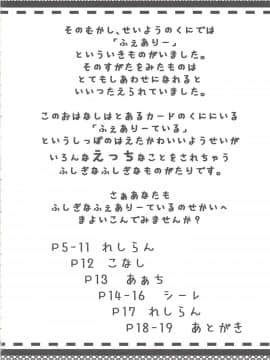 そのむかし、せいようのくにでは
「ふぇありー」
といういきものがいました。
そのすがたをみたものは
とてもしあわせになれると
いいつたえられていました。
このおはなしはとあるカードのくににいる
「ふぇありーている」
というしっぽのはえたかわいいようせいが
いろんなえっちなことをされちゃう
ふしぎなふしぎなものがたりです。
さぁあなたも
ふしぎなふぇありーているのせかいへ
まよいこんでみませんか？
P5-11 れしらん
P12 こなし
P13 あぁち
P14-16 シーレ
P17 れしらん
P18-19 あとがき